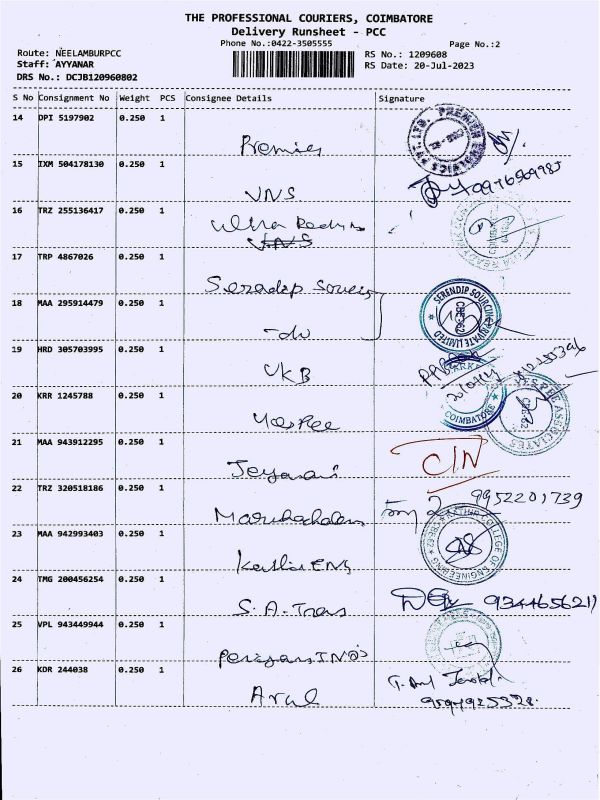 THE PROFESSIONAL COURIERS, COIMBATORE
Delivery Runsheet - PCC
Phone No.:0422-3505555
Page No.:2
Route: NEELAMBURPCC
RS No.: 1209608
Staff: AYYANAR
RS Date: 20-Jul-2023
DRS No.: DCJB120960802
S No Consignment No Weight PCS Consignee Details Signature
14 DPI 5197902 0.250 1
Premier
15 IXM 504178130 0.250 1
VNS
16 TRZ 255136417 0.250 1
Ultra Ready
VNS
17 TRP 4867026 0.250 1
Serendip Sourcing
SERENDIP SOURCING PRIVATE LIMITED
18 MAA 295914479 0.250 1
-do
19 HRD 305703995 0.250 1
VKB
COIMBATORE
20 KRR 1245788 0.250 1
YesPee
YESPEE ASSOCIATES
21 MAA 943912295 0.250 1
Jeyarani
22 TRZ 320518186 0.250 1
Maruhachalam
9952201739
23 MAA 942993403 0.250 1
Kathir ENG
KATHIR COLLEGE OF ENGINEERING
24 TMG 200456254 0.250 1
S.A. Trans
9344656211
25 VPL 943449944 0.250 1
26 KDR 244038 0.250 1
Arul